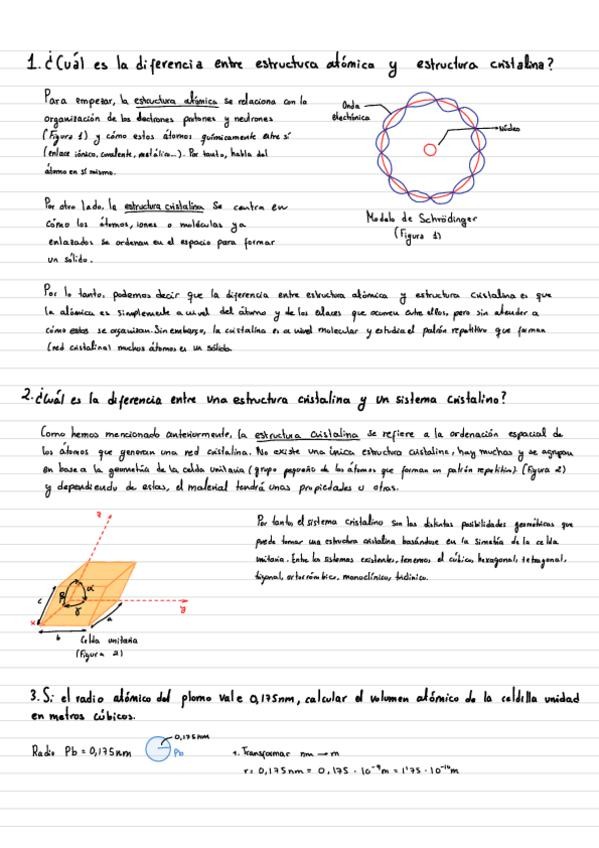 1. ¿Cuál es la diferencia entre estructura atómica y estructura cristalina?
Para empezar, la estructura atómica se relaciona con la
organización de los electrones protones y neutrones
(Figura 1) y cómo estos átomos químicamente entre sí
(enlace iónico, covalente, metálico...). Por tanto, habla del
átomo en sí mismo.
Onda
electrónica
Núcleo
Modelo de Schrödinger
(Figura 1)
Por otro lado, la estructura cristalina se centra en
cómo los átomos, iones o moléculas ya
enlazados se ordenan en el espacio para formar
un sólido.
Por lo tanto, podemos decir que la diferencia entre estructura atómica y estructura cristalina es que
la atómica es simplemente a nivel del átomo y de los enlaces que ocurren entre ellos, pero sin atender a
cómo estos se organizan. Sin embargo, la cristalina es a nivel molecular y estudia el patrón repetitivo que forman
(red cristalina) muchos átomos es un sólido.
2. ¿Cuál es la diferencia entre una estructura cristalina y un sistema cristalino?
Como hemos mencionado anteriormente, la estructura cristalina se refiere a la ordenación espacial de
los átomos que generan una red cristalina. No existe una única estructura cristalina, hay muchas y se agrupan
en base a la geometría de la celda unitaria (grupo pequeño de los átomos que forman un patrón repetitivo) (Figura 2)
y dependiendo de estas, el material tendrá unas propiedades u otras.
Por tanto, el sistema cristalino son las distintas posibilidades geométricas que
puede tomar una estructura cristalina basándose en la simetría de la celda
unitaria. Entre los sistemas existentes, tenemos el cúbico, hexagonal, tetragonal,
trigonal, ortorrómbico, monoclínico, triclínico.
z
c
β
α
γ
a
x
b
y
Celda unitaria
(Figura 2)
3. Si el radio atómico del plomo vale 0,175nm, calcular el volumen atómico de la celdilla unidad
en metros cúbicos.
Radio Pb = 0,175nm
0,175nm
Pb
1. Transformar nm → m
r = 0,175nm = 0,175 · 10⁻⁹m = 1'75 · 10⁻¹⁰m